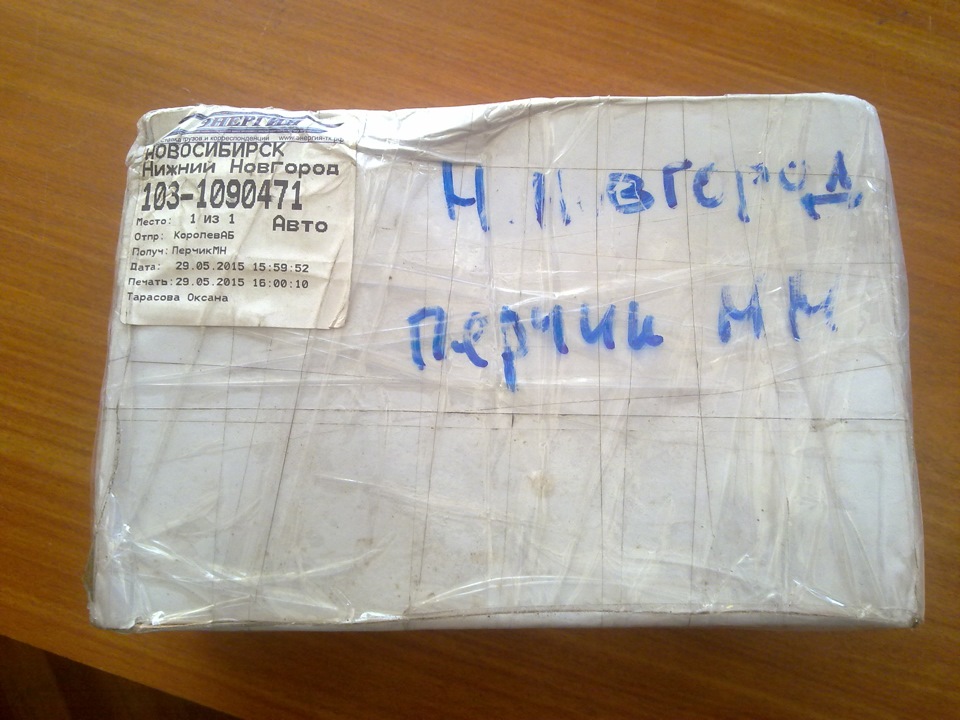 ЭНЕРГИЯ
грузов и корреспонденций www.энергия-тк.рф
НОВОСИБИРСК
Нижний Новгород
103-1090471
Место: 1 из 1 Авто
Отпр: КоролевАБ
Получ: ПерчикМН
Дата: 29.05.2015 15:59:52
Печать: 29.05.2015 16:00:10
Тарасова Оксана
Н. Новгород
Перчик МН